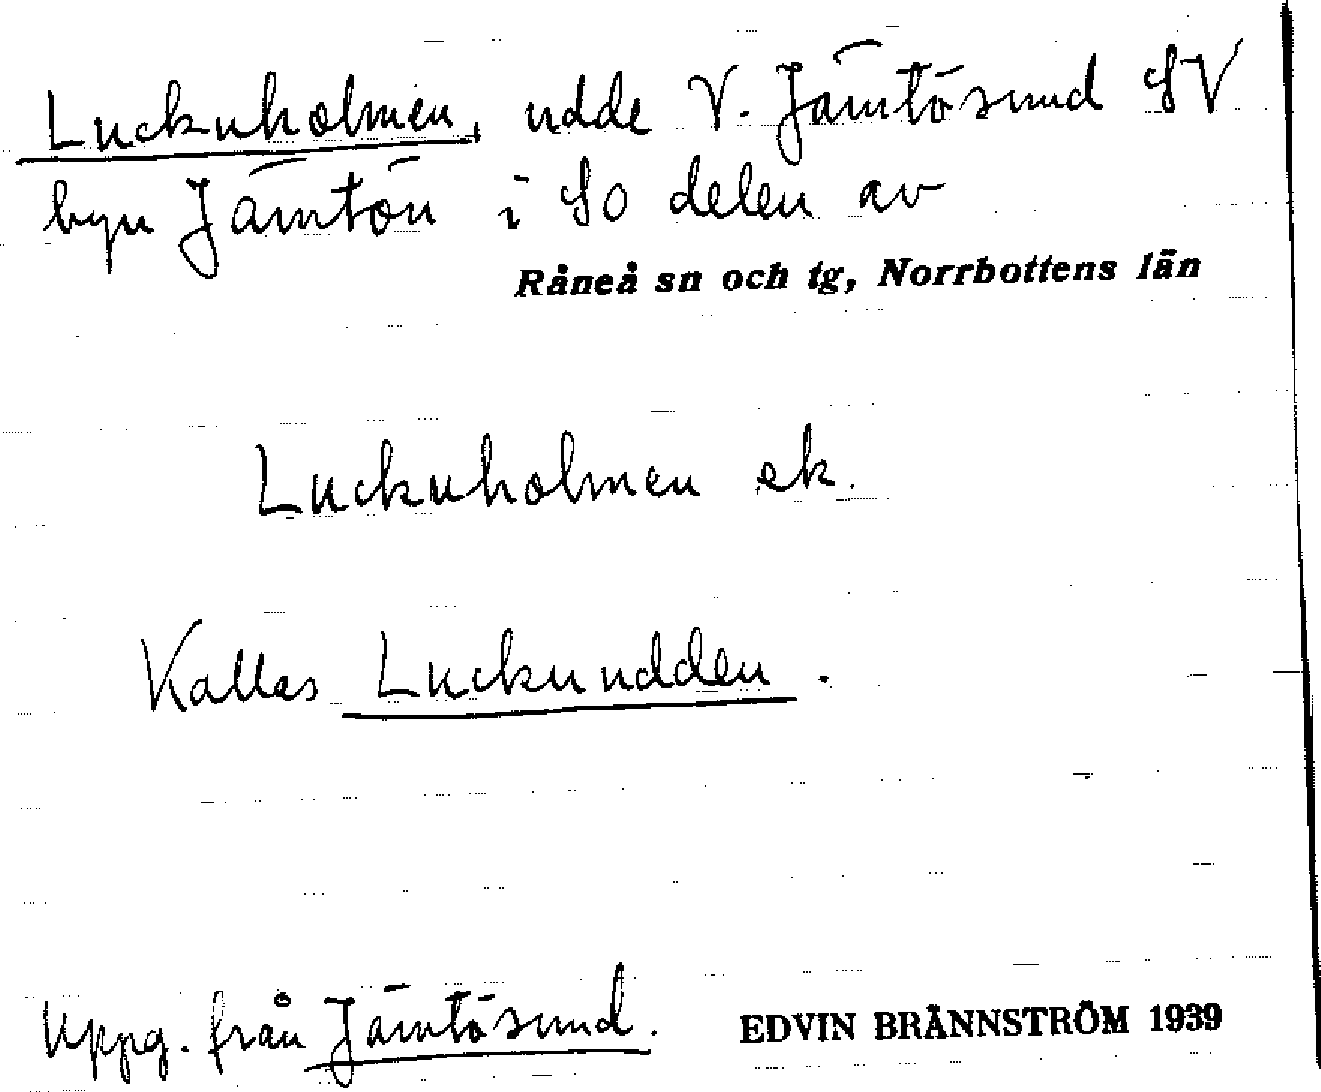 Luckuholmen, udde V. Jämtösund SV
byn Jämtön i SO delen av
Råneå sn och tg, Norrbottens län
Luckuholmen ek.
Kallas Luckuudden.
Uppg. från Jämtösund.
EDVIN BRÄNNSTRÖM 1939